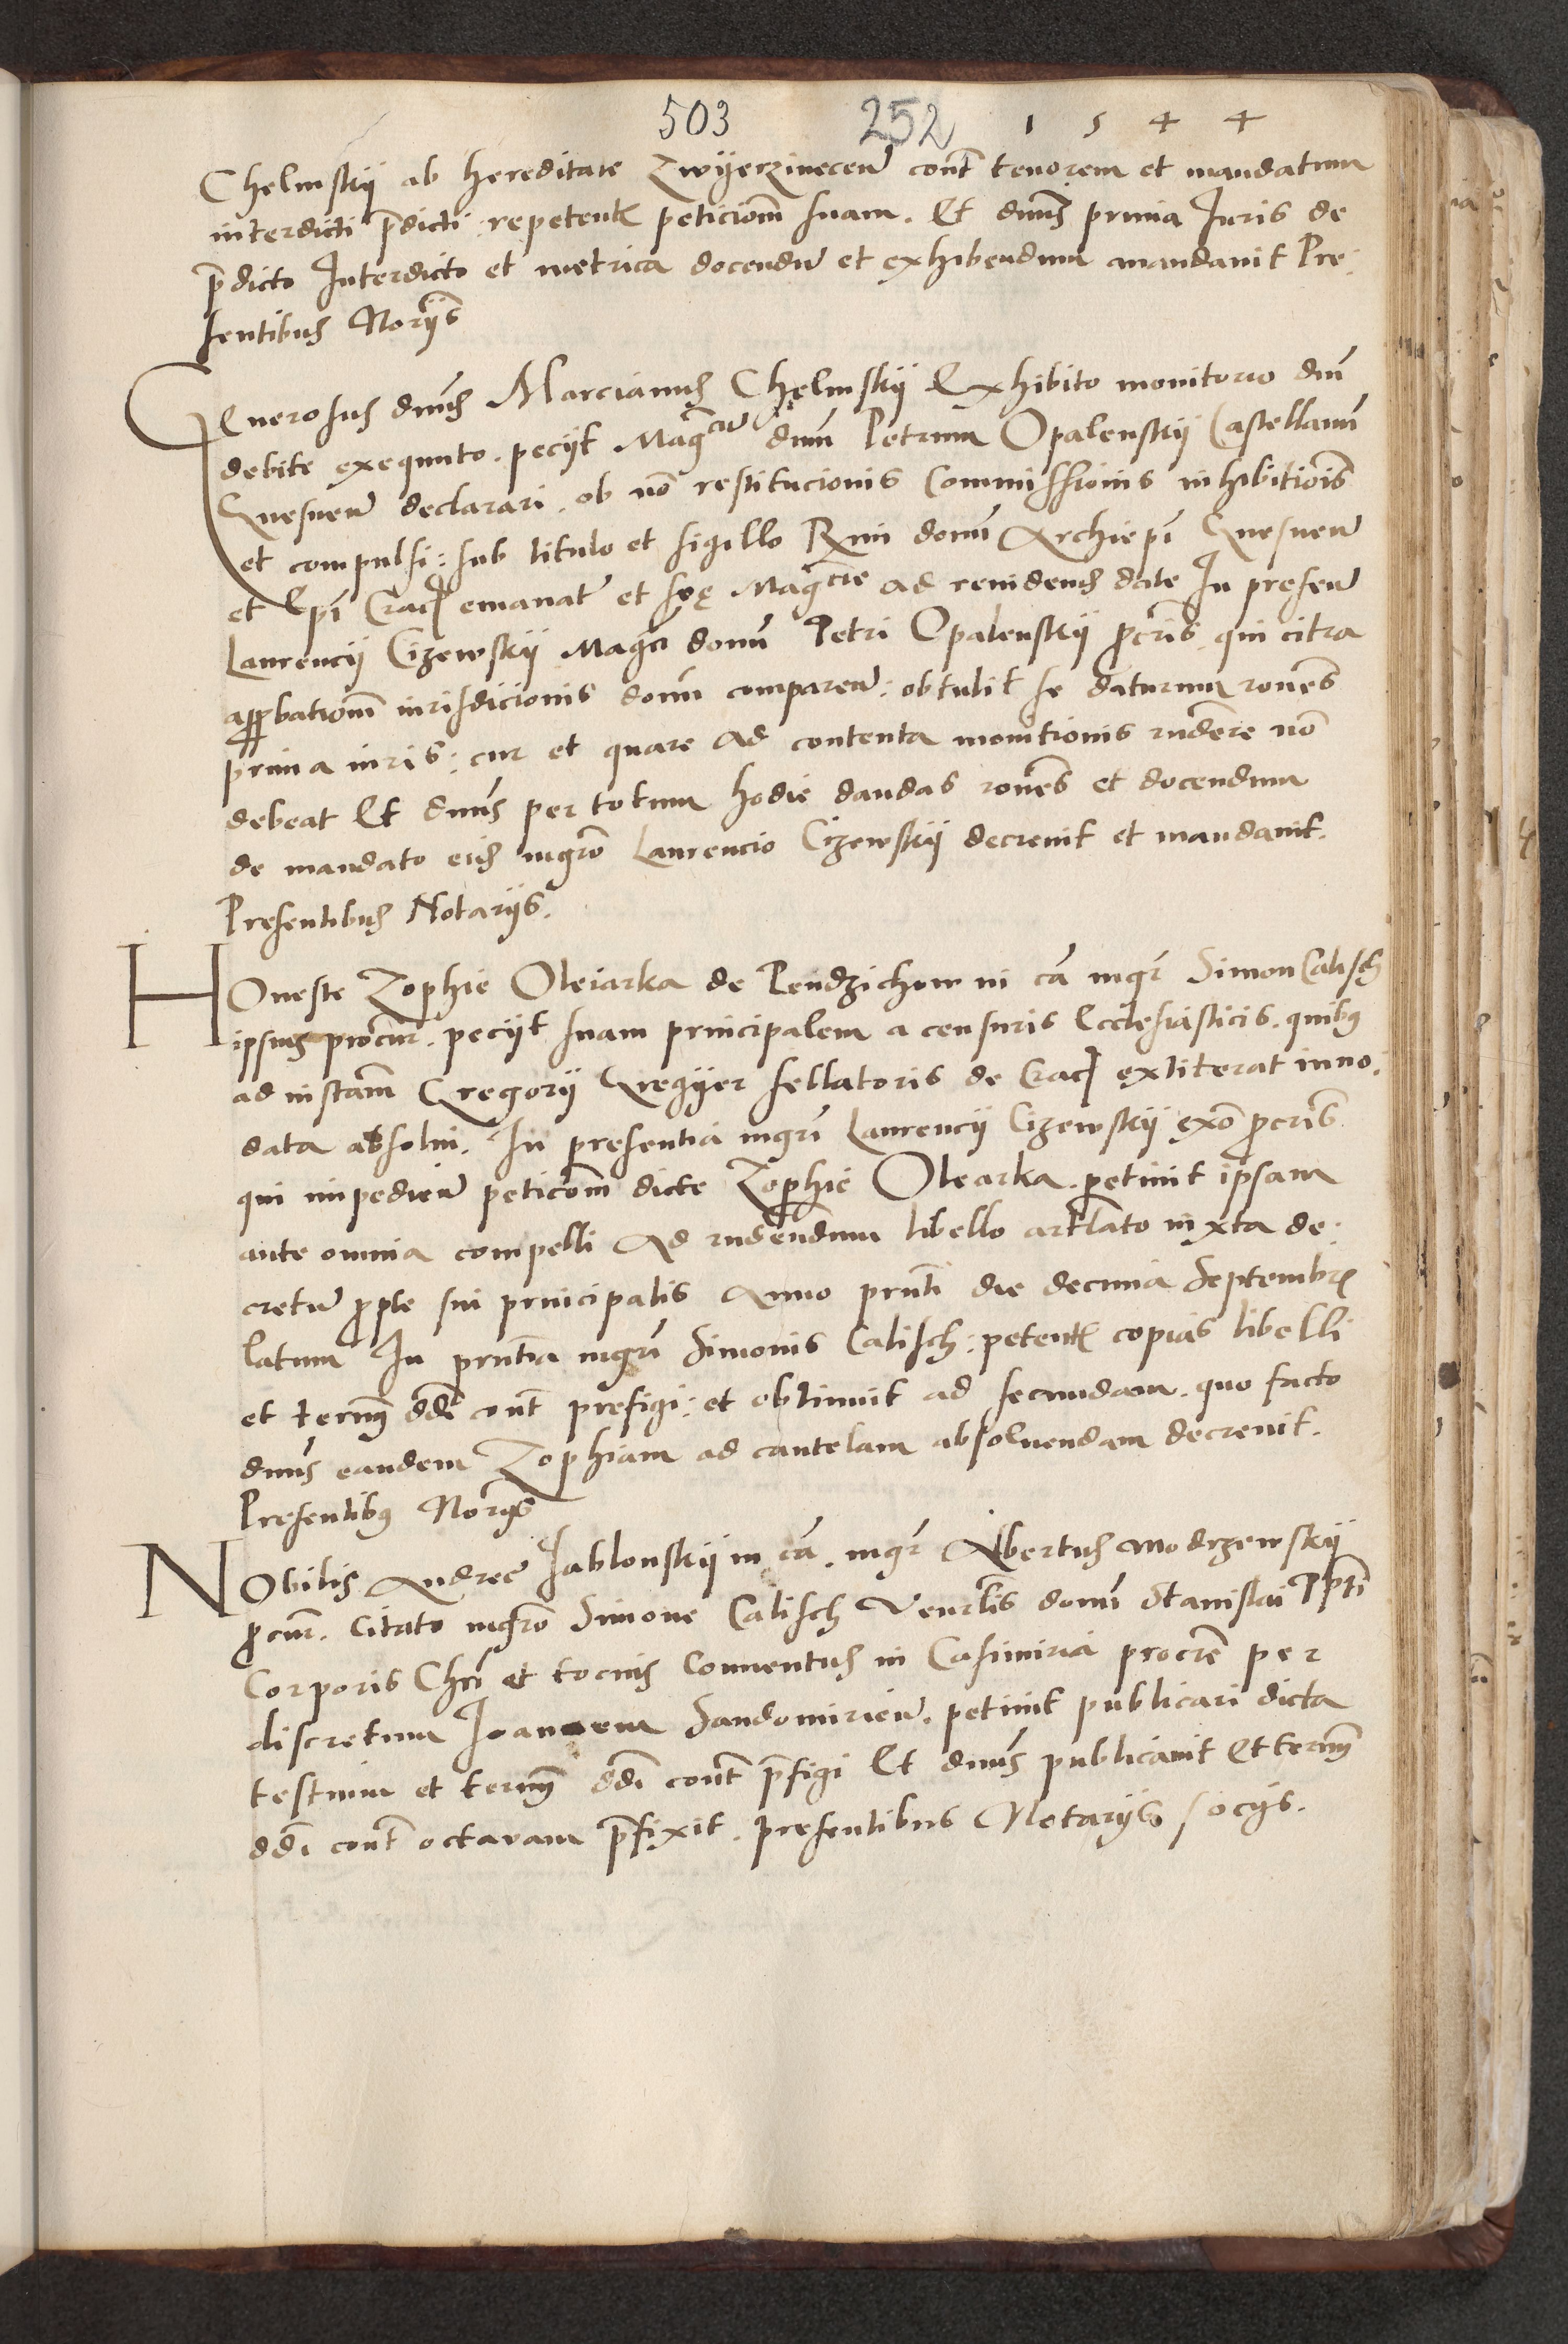 503 252 1544
Chelmskij ab hereditate Zwÿerzinecen̄ cont̄ tenorem et mandatum
interdicti p̄dicti repetent̄ peticiom̄ suam. Et dnus prima Iuris de
p̄dicto Interdicto et metrica docendū et exhibendum mandavit Pre:
sentibus Norÿs
GEnerosus dnus Marcianus Chelmskij Exhibito monitorio dni
debite exequuto. pecÿt Magcū dnm Petrum Opalenskij Castellanū
Gnesnen̄ declarari. ob nō restitucionis Commissionis inhibitiōis
et compulsi: sub titulo et sigillo Rmi domī Archiepī Gnesnen̄
et Epī Crac̄ emanat̄ et sue Magcie ad revidendum date In presen̄
Laurencij Cizewskij Magci domī Petri Opalenskij p̄cris. qui citra
approbatiom̄ iurisdicionis domī comparen̄: obtulit se daturum rones
prima iuris: cur et quare ad contenta monitionis rndere nō
debeat Et dnus per totum hodie dandas rones et docendum
de mandato eius mgrō Laurencio Cizewskij decrevit et mandavit.
Presentibus Notarijs.
HOneste Zophie Oleiarka de Pendzichow in cā mgr̄ Simon Calisch
ipsius procur̄. pecÿt suam principalem a censuris Ecclesiasticis. quibus
ad instam̄ Gregorij Gregÿer sellatoris de Crac̄ extiterat inno:
data absolvi. In presentia mgrī Laurencij Cizewskij exō p̄cris
qui impedien̄ peticiom̄ dicte Zophie Olearka. petivit ipsam
ante omnia compelli ad rndendum libello artlato iuxta de:
cretū p̄ parte sui principalis Anno prnti die decima Septembr̄
latum In prntia mgrī Simonis Calisch: petent̄ copias libelli
et termm̄ ddi cont̄ prefigi: et obtinuit ad secundam. quo facto
dnus eandem Zophiam ad cautelam absolvendam decrevit.
Presentibus Norÿs
NObilis Andree Iablonskij in cā. mgr̄ Albertus Modrzewskij
p̄cur̄. Citato mgrō Simone Calisch Venrlis domī Stanislai Pptī
Corporis Chrī et tocius Conventus in Casimiria procrē per
discretum Ioannem Sandomirien̄. petivit publicari dicta
testium et termm̄ ddi cont̄ p̄figi Et dnus publicavit Et termm̄
ddi cont̄ octavam p̄fixit. presentibus Notarijs socijs.